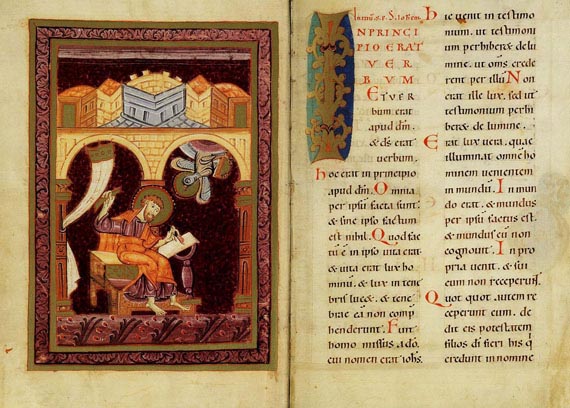 IN PRINCI
PIO ERAT
VER
BUM
ET VER
bum erat
apud dm̄.
& d̄s erat
verbum.
hoc erat in principio
apud dm̄. Omnia
per ipsū facta sunt:
& sine ipso factum
est nihil. Quod fac
tū ē in ipso vita erat.
& vita erat lux ho
minū. & lux in tene
bris lucet. & tene
brae eā non compre
henderunt. Fuit
homo missus a do.
cui nomen erat iohs.
hic venit in testimo
nium. ut testimoni
um perhiberet de lu
mine. ut oms̄ crede
rent per illū. Non
erat ille lux. sed ut
testimonium perhi
beret de lumine.
Erat lux vera. quae
illuminat omnē ho
minem venientem
in mundū. In mun
do erat. & mundus
per ipsū factus est.
& mundus eū non
cognovit. In pro
pria venit. & sui
eum non receperunt.
Quot quot autem re
ceperunt eum. de
dit eis potestatem
filios dī fieri his q
credunt in nomine